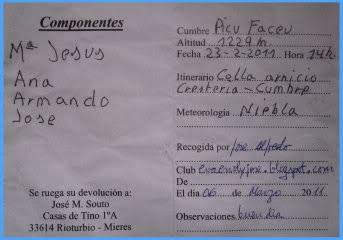 Componentes
Mª Jesus
Ana
Armando
Jose
Se ruega su devolución a:
José M. Souto
Casas de Tino 1ºA
33614 Rioturbio - Mieres
Cumbre Picu Faceu
Altitud 1229 m.
Fecha 23-2-2011 Hora 14h
Itinerario Colla arnicio
Cresteria - Cumbre
Meteorología Niebla
Recogida por jose alfredo
Club .blogspot.com
De
El día 06 de Marzo 2011
Observaciones buen dia